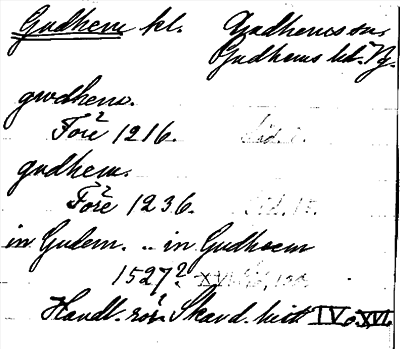 Gudhem kl. Gudhems sn,
Gudhems hd. Vg.
gwdhem.
Före 1216.
gudhem.
Före 1236.
in Gudem. .. in Gudhoem
1527?
Handl. rör. Skand. hist. IV o. XVI.